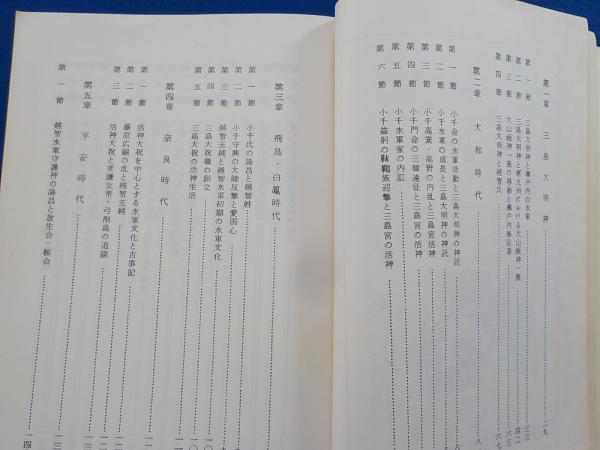 第一章 三島大明神 一九
第一節 三島大明神と瀬戸内の水軍 三三
第二節 三島大明神と南九州における大山祇神一族 四二
第三節 大山祇神一族の移動と瀬戸内海定着 六三
第四節 三島大明神と越智氏 六七
第二章 大和時代 八
第一節 小千命の水軍活動と三島大明神の神託 八
第二節 小千水軍の成長と三島大明神の神託
第三節 小千高箕・高野の内乱と三島宮活神
第四節 小千門命の三韓遠征と三島宮の活神
第五節 小千水軍家の内訌
第六節 小千益躬の靺鞨族迎撃と三島宮の活神
第三章 飛鳥・白鳳時代
第一節 小千氏の隆昌と越智姓
第二節 小千守興の大陸反撃と愛国心
第三節 越智玉純と越智水軍初期の水軍文化
第四節 三島大祝職の創立
第五節 三島大祝の活神生活
第四章 奈良時代
第一節 活神大祝を中心とする水軍文化と古事記
第二節 藤原広嗣の乱と越智玉純
第三節 活神大祝と孝謙女帝・弓削島の道鏡
第五章 平安時代
第一節 越智水軍守護神の隆昌と放生会・桜会